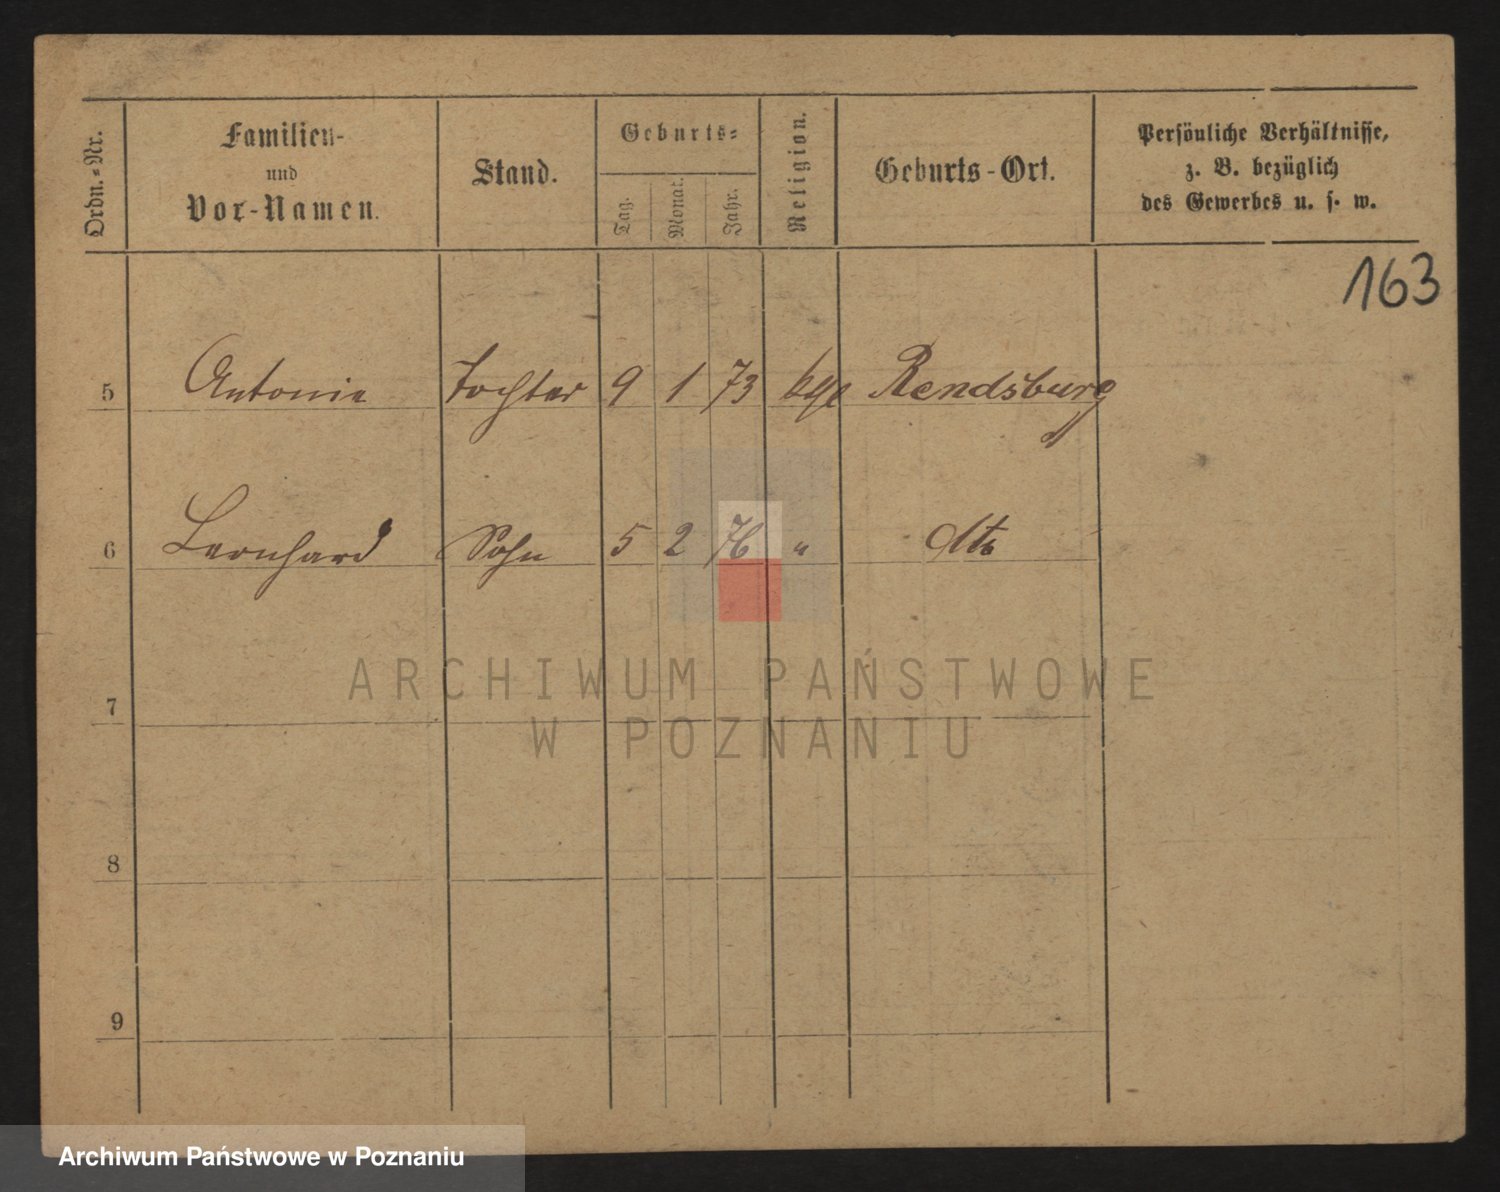 Ordn.-Nr.
Familien-
und
Vor-Namen.
Stand.
Geburts-
Tag.
Monat.
Jahr.
Religion.
Geburts-Ort.
Persönliche Verhältnisse,
z. B. bezüglich
des Gewerbes u. s. w.
163
5 Antonie Tochter 9 1 73 Rendsburg
6 Leonhard Sohn 5 2 76 " dto
7
8
9
ARCHIWUM PAŃSTWOWE
W POZNANIU
Archiwum Państwowe w Poznaniu